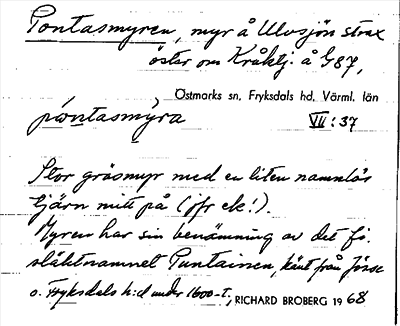 Pontasmyren, myr å Ulvsjön strax
öster om Kråktj. å G87,
Östmarks sn, Fryksdals hd, Värml. län
pòntasmỳra VII:37
Stor gräsmyr med en liten namnlös
tjärn mitt på (jfr ek!).
Myren har sin benämning av det fi.
släktnamnet Puntainen, känt från Jösse
o. Fryksdals h:d under 1600-t., RICHARD BROBERG 1968